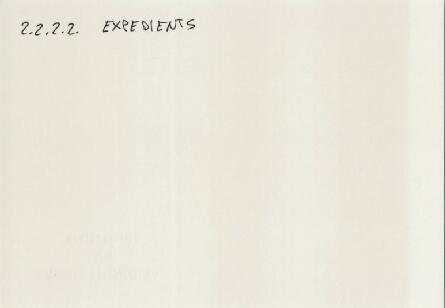 2.2.2.2. EXPEDIENTS